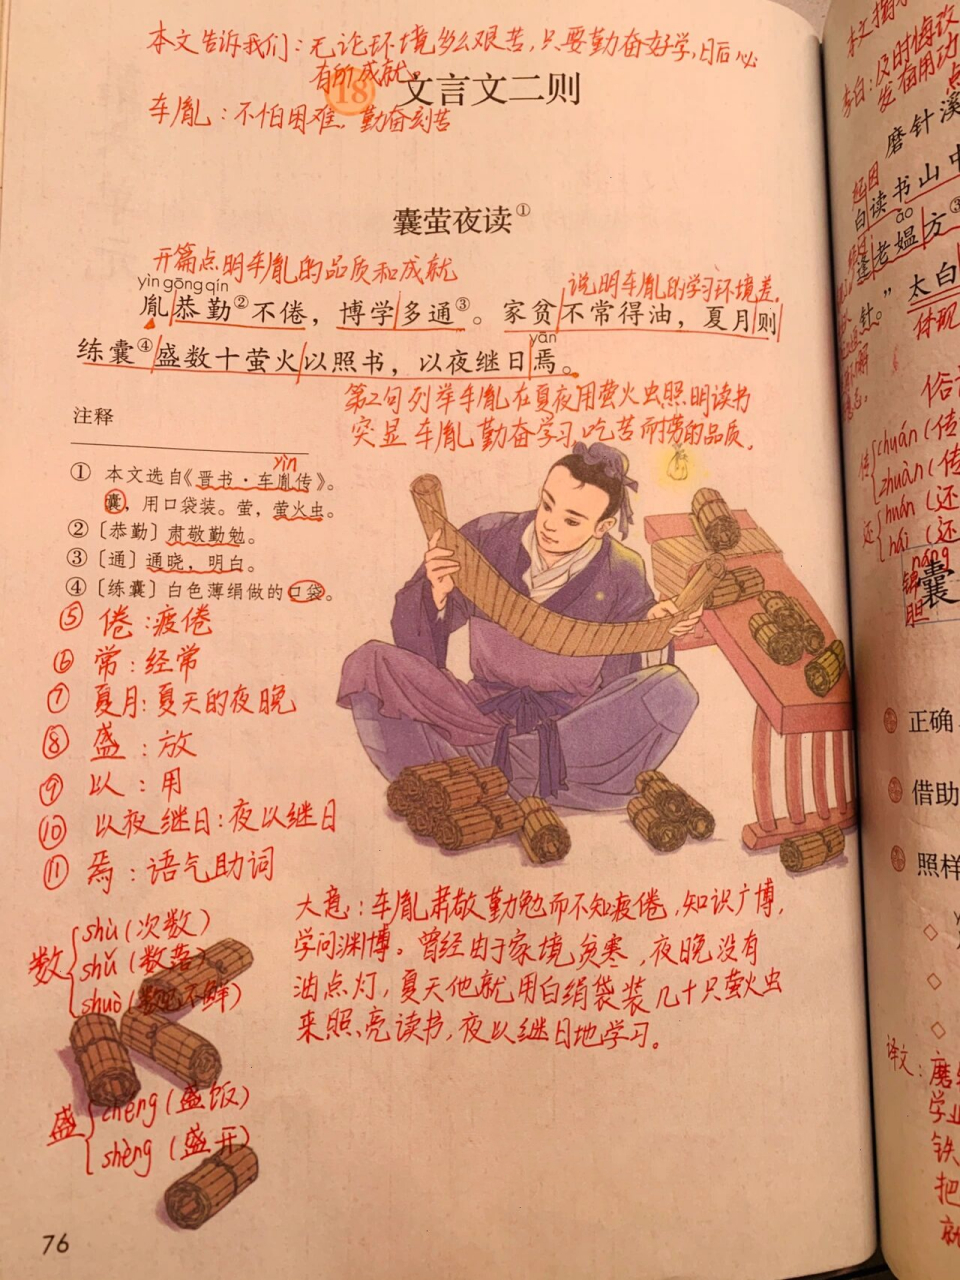 本文告诉我们：无论环境多么艰苦，只要勤奋好学，日后必
有所成就。
18 文言文二则
车胤：不怕困难，勤奋刻苦
囊萤夜读①
开篇点明车胤的品质和成就
说明车胤的学习环境差。
yìn gōng qín
胤恭勤②不倦，博学多通③。家贫不常得油，夏月则
yān
练囊④盛数十萤火以照书，以夜继日焉。
第2句列举车胤在夏夜用萤火虫照明读书
突显车胤勤奋学习，吃苦耐劳的品质。
注释
yìn
① 本文选自《晋书·车胤传》。
囊，用口袋装。萤，萤火虫。
②〔恭勤〕肃敬勤勉。
③〔通〕通晓，明白。
④〔练囊〕白色薄绢做的口袋。
⑤ 倦：疲倦
⑥ 常：经常
⑦ 夏月：夏天的夜晚
⑧ 盛：放
⑨ 以：用
⑩ 以夜继日：夜以继日
⑪ 焉：语气助词
数
shù（次数）
shǔ（数落）
shuò（数见不鲜）
盛
chéng（盛饭）
shèng（盛开）
大意：车胤肃敬勤勉而不知疲倦，知识广博，
学问渊博。曾经由于家境贫寒，夜晚没有
油点灯，夏天他就用白绢袋装几十只萤火虫
来照亮读书，夜以继日地学习。
76
李白：及时悔改
发奋用功
磨针溪
起因
白读书山中
ǎo
逢老媪方③
针。”太白
体现
俗语
传
chuán（传
zhuàn（传
还
huán（还
hái（还
náng
锦囊
正确
借助
照样
译文：磨
学业
铁
把
就